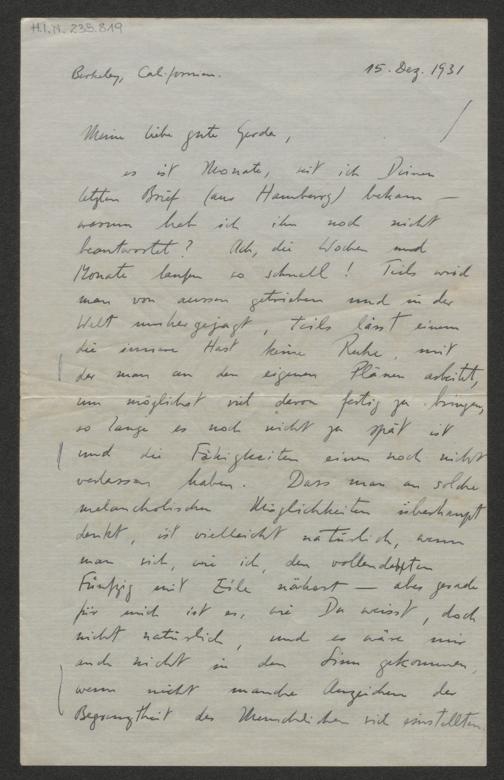 H.I.N. 235.819
Berkeley, Californien. 15. Dez. 1931
Meine liebe gute Gerda,
es ist Monate, seit ich Deinen
letzten Brief (aus Hamburg) bekam —
warum hab ich ihn noch nicht
beantwortet? Ach, die Wochen und
Monate laufen so schnell! Teils wird
man von aussen getrieben und in der
Welt umhergejagt, teils lässt einem
die innere Hast keine Ruhe, mit
der man an den eigenen Plänen arbeitet,
um möglichst viel davon fertig zu bringen,
so lange es noch nicht zu spät ist
und die Fähigkeiten einen noch nicht
verlassen haben. Dass man an solche
melancholischen Möglichkeiten überhaupt
denkt, ist vielleicht natürlich, wenn
man sich, wie ich, den vollendeten
Fünfzig mit Eile nähert — aber gerade
für mich ist es, wie Du weisst, doch
nicht natürlich, und es wäre mir
auch nicht in den Sinn gekommen,
wenn nicht manche Anzeichen der
Begrenztheit des Menschlichen sich einstellten.